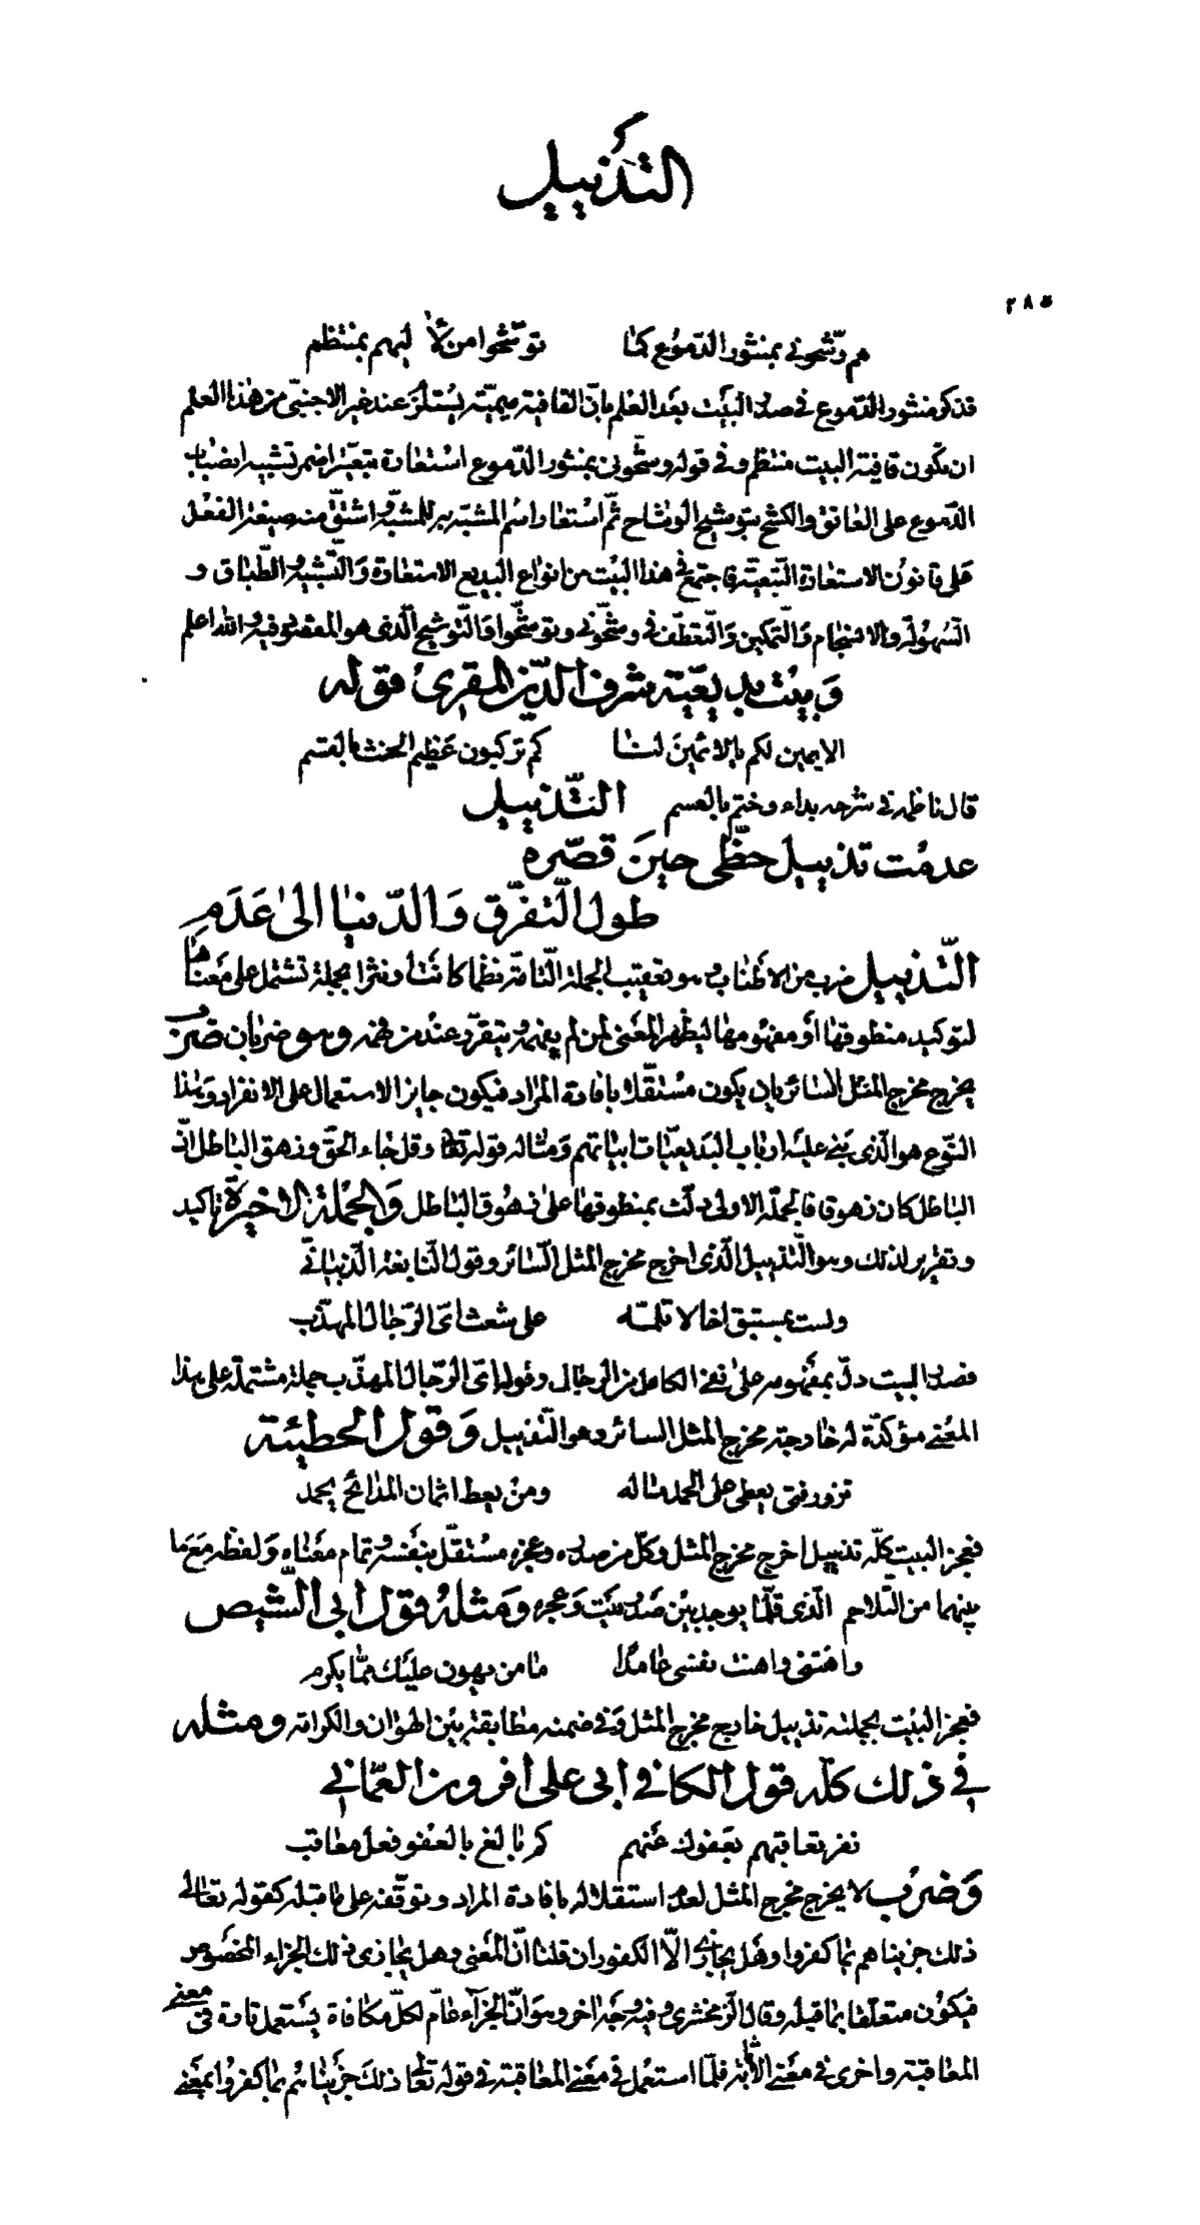 التذييل
٢٨٥
هم وشّحوني بمنثور الدّموع كما توشّحوا من لآليهم بمنتظم
فذكر منثور الدّموع في صدر البيت بعد العلم بانّ القافية ميميّة يستلزم عند غير الاجنبيّ من هذا العلم
ان تكون قافية البيت منتظم وفي قوله وشّحوني بمنثور الدّموع استعارة تبعيّة اضمر تشبيه انصباب
الدّموع على العاتق والكشح بتوشيح الوشاح ثمّ استعار اسم المشبّه به للمشبّه واشتقّ منه صيغة الفعل
على قانون الاستعارة التّبعيّة فاجتمع في هذا البيت من انواع البديع الاستعارة والتّشبيه والطّباق و
السّهولة والانسجام والتّمكين والتّعطّف في وشّحوني وتوشّحوا والتّوشيح الّذي هو المقصود فيه والله اعلم
وبيت بديعيّة شرف الدّين المقري قوله
الا يمين لكم بالا ئمين لنا كم تركبون عظيم الحنث بالقسم
قال ناظمه في شرحه بداء وختم بالقسم التّذييل
عدمت تذييل حظّي حين قصّره
طول التّفرّق والدّنيا الى عدم
التّذييل ضرب من الاطناب وهو تعقيب الجملة التّامّة نظما كانت او نثرا بجملة تشتمل على معناها
لتوكيد منطوقها او مفهومها ليظهر المعنى لمن لم يفهمه ويتقرّر عند من فهمه وهو ضربان ضرب
يخرج مخرج المثل السائر بان يكون مستقلّا بافادة المراد فيكون جايز الاستعمال على الانفراد وهذا
النّوع هو الّذي بني عليه ارباب البديعيّات ابياتهم ومثاله قوله تعالى وقل جاء الحقّ وزهق الباطل انّ
الباطل كان زهوقا فالجملة الاولى دلّت بمنطوقها على زهوق الباطل والجملة الاخيرة تاكيد
وتقرير لذلك وهو التّذييل الّذي اخرج مخرج المثل السّائر وقول النّابغة الذّبيانيّ
ولست بمستبق اخا لا تلمّه على شعث ايّ الرّجال المهذّب
فصدر البيت دلّ بمفهومه على نفي الكامل من الرجال وقوله ايّ الرّجال المهذّب جملة مشتملة على هذا
المعنى مؤكدّة له خارجة مخرج المثل السائر وهو التّذييل وقول الحطيئة
تزور فتى يعطي على الحمد ماله ومن يعط اثمان المدائح يحمد
فعجز البيت كلّه تذييل اخرج مخرج المثل وكلّ من صدره وعجزه مستقلّ بنفسه وتمام معناه ولفظه مع ما
بينهما من التّلاحم الّذي قلّما يوجد بين صدر بيت وعجزه ومثله قول ابي الشّيص
واهنتني واهنت نفسي عامدا ما من يهون عليك ممّا يكرم
فعجز البيت بجملته تذييل خارج مخرج المثل وفي ضمنه مطابقة بين الهوان والكرامة ومثله
في ذلك كلّه قول الكافي ابي علي افروز العمّاني
نفر تعاقبهم بعفوك عنهم كم بالغ بالعفو فعل معاقب
وضرب لا يخرج مخرج المثل لعدم استقلاله بافادة المراد وتوقّفه على ما قبله كقوله تعالى
ذلك جزيناهم بما كفروا وهل يجازى الّا الكفور ان قلنا انّ المعنى وهل يجازى ذلك الجزاء المخصوص
فيكون متعلّقا بما قبله وقال الزّمخشري وفيه وجه اخر وهو انّ الجزآء عامّ لكلّ مكافاة يستعمل تارة في معنى
المعاقبة واخرى في معنى الاثابة فلمّا استعمل في معنى المعاقبة في قوله تعالى ذلك جزيناهم بما كفروا بمعنى